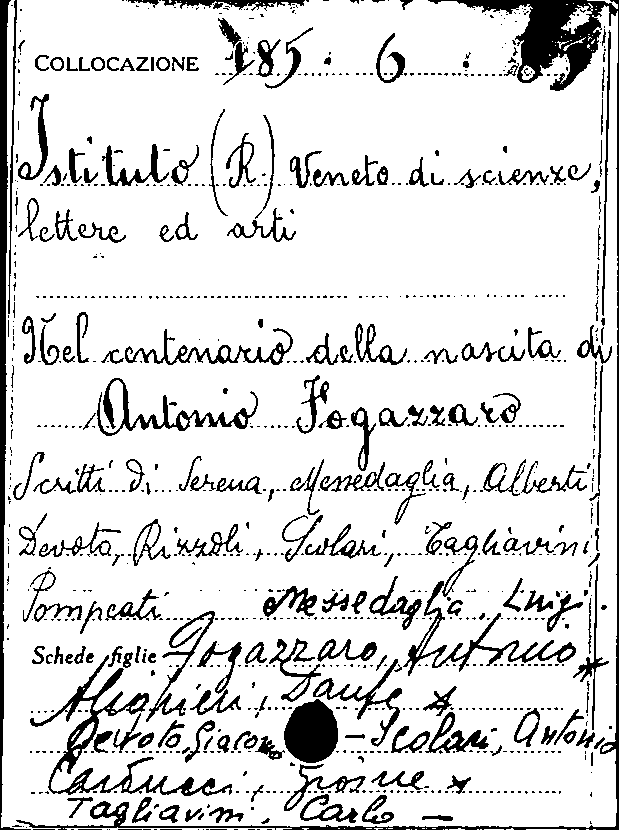 COLLOCAZIONE 185. 6.
Istituto (R.) Veneto di scienze,
lettere ed arti
Nel centenario della nascita di
Antonio Fogazzaro
Scritti di Serena, Messedaglia, Alberti,
Devoto, Rizzoli, Scolari, Tagliavini,
Pompeati Messedaglia, Luigi.
Schede figlie Fogazzaro, Antonio *
Alighieri, Dante *
Devoto, Giacomo - Scolari, Antonio
Carducci, Giosue *
Tagliavini, Carlo -